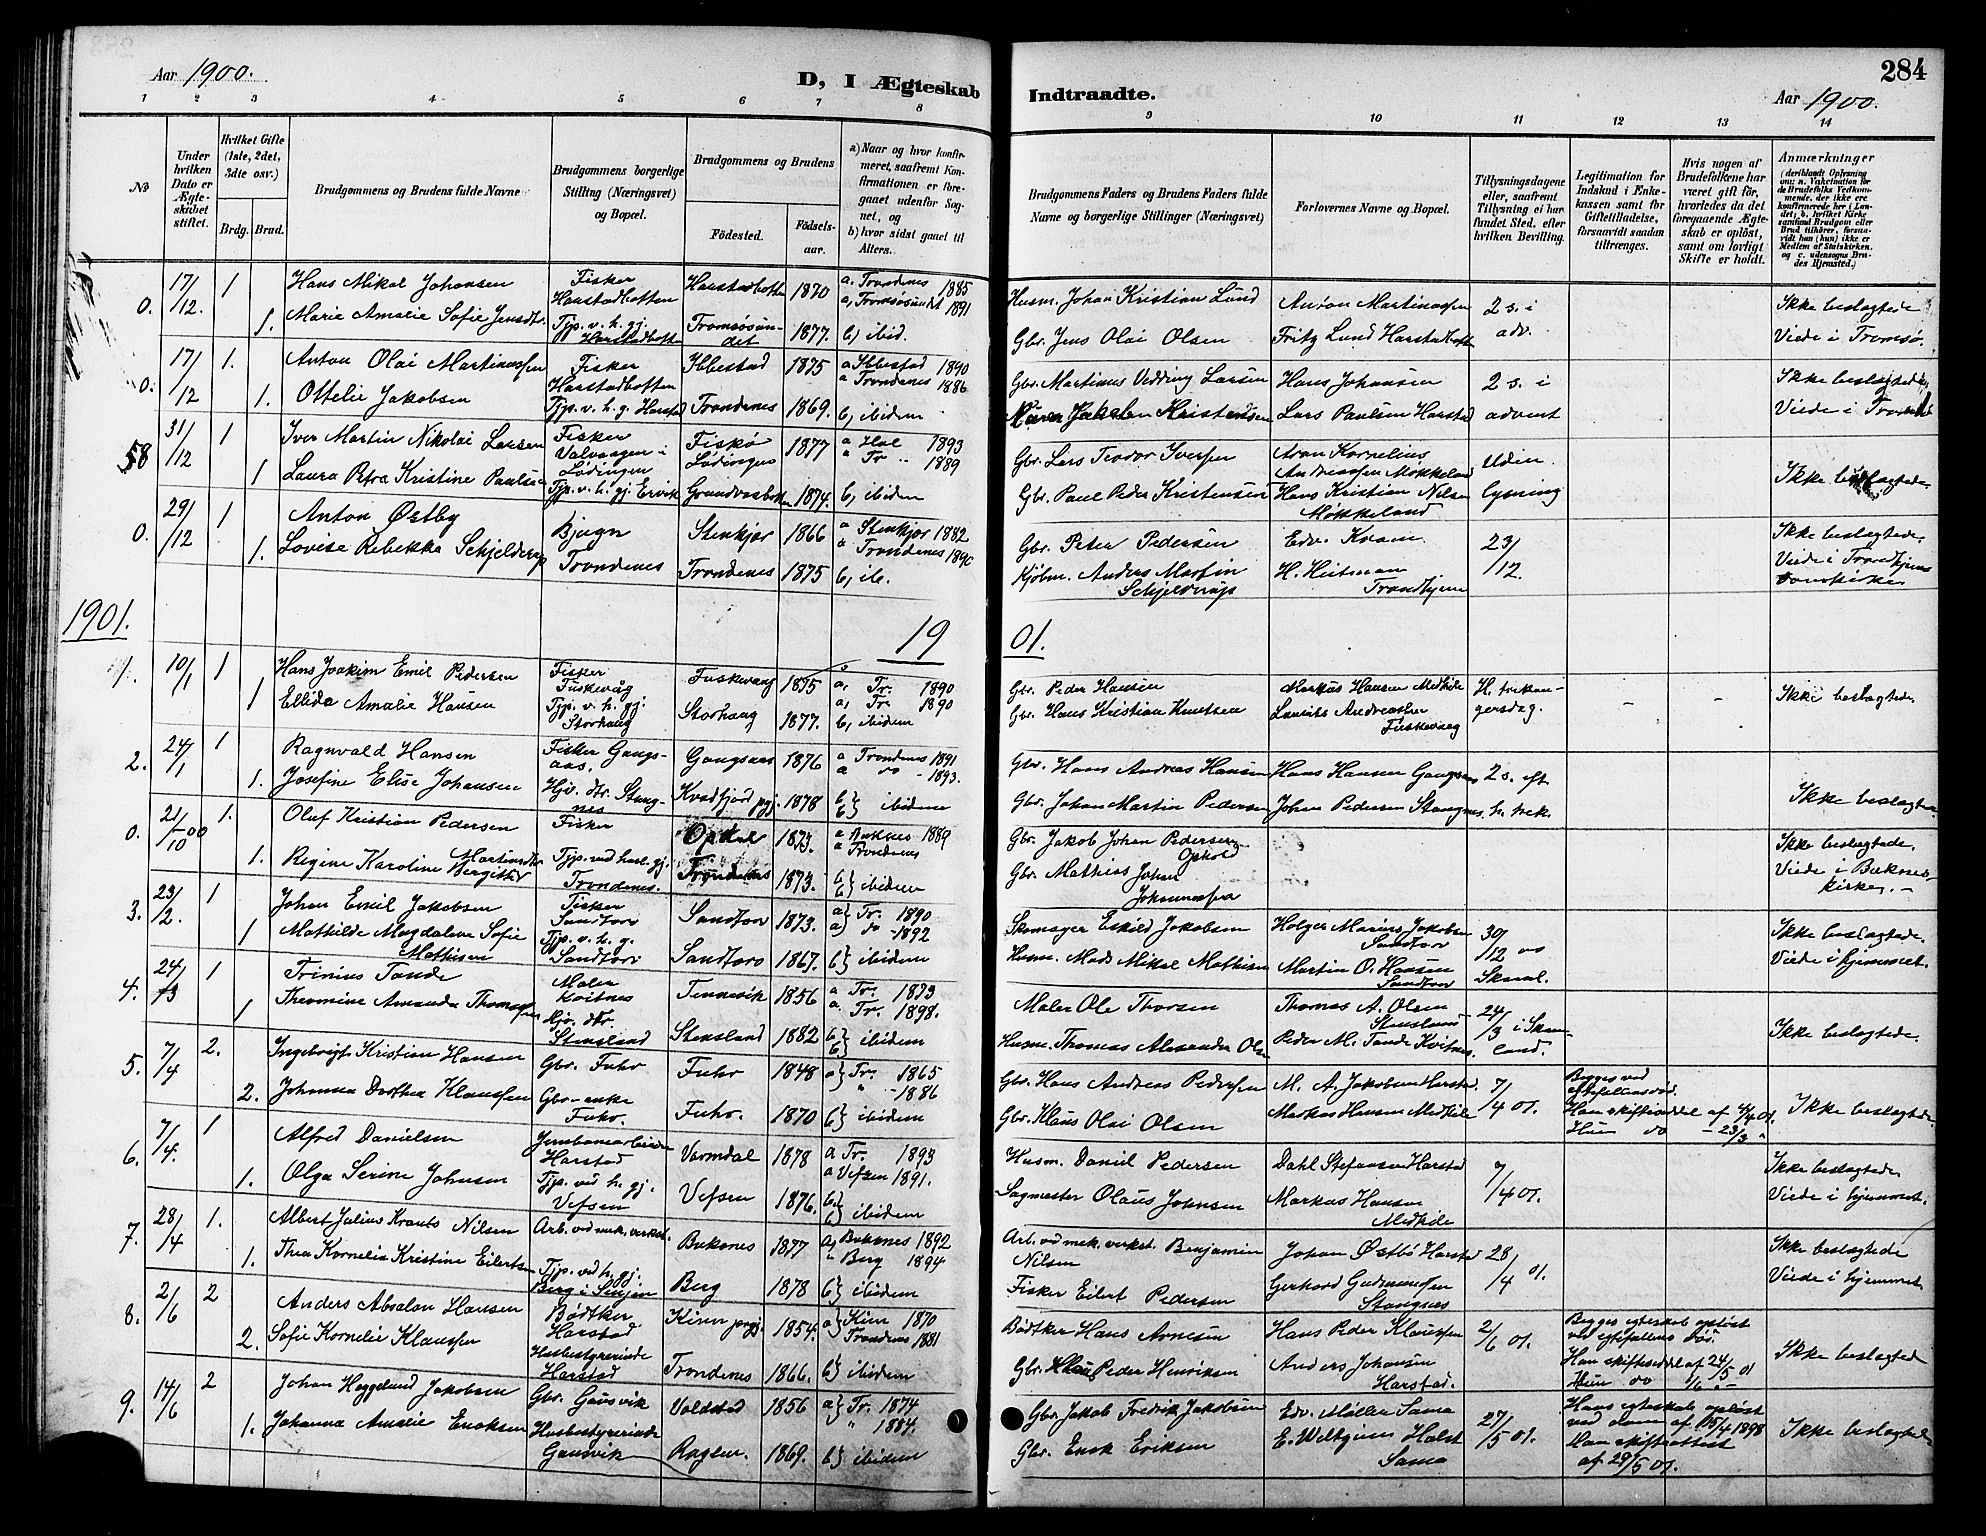 284
Aar 1900.
D, I Ægteskab
Indtraadte.
Aar 1900.
1 2 3 4 5 6 7 8 9 10 11 12 13 14
No
Under hvilken Dato er Ægteskabet stiftet.
Hvilket Gifte (1ste, 2det, 3die osv.)
Brdg. Brud.
Brudgommens og Brudens fulde Navne
Brudgommens borgerlige Stilling (Næringsvei) og Bopæl.
Brudgommens og Brudens
Fødested.
Fødselsaar.
a) Naar og hvor konfirmeret, saafremt Konfirmationen er foregaaet udenfor Sognet, og
b) hvor sidst gaaet til Alters.
Brudgommens Faders og Brudens Faders fulde Navne og borgerlige Stillinger (Næringsvei)
Forlovernes Navne og Bopæl.
Tillysningsdagene eller, saafremt Tillysning ei har fundet Sted, efter hvilken Bevilling.
Legitimation for Indskud i Enkekassen samt for Giftetilladelse, forsaavidt saadan tiltrænges.
Hvis nogen af Brudefolkene har været gift før, hvorledes da det foregaaende Ægteskab er opløst, samt om lovligt Skifte er holdt.
Anmærkninger
0. 17/12. 1 Hans Mikal Johansen Fisker Harstadbotten Harstadbotten 1870 a. Trondenes 1885 Husm. Johan Kristian Lund Anton Martinussen 2 s. i adv. Ikke beslægtede
1. Marie Amalie Sofie Jensdtr. Tjp. v. h. gj. Harstadbotten Tromsøsundet 1877. a, Tromsøsundet 1891 b) ibid. Gbr. Jens Olai Olsen Fritz Lund Harstadbotten Viede i Tromsø.
0. 17/12 1. Anton Olai Martinussen Fisker Harstadbotten Ibbestad 1875 a Ibbestad 1890 Gbr. Martinus Vedding Larsen Hans Johansen 2 s. i advent Ikke beslægtede
1. Ottelie Jakobsen Tjp. v. h. g. Harstad Trondenes 1869. a Trondenes 1886 b, ibidem Jakob Kristensen Lars Paulsen Harstad Viede i
58 31/12 1 Iver Martin Nikolai Larsen Fisker Valvaagen i Lødingen Fiskø Lødingen 1877 a Hol 1893 Gbr. Lars Teodor Iversen Aron Kornelius Andreassen Møkkeland Uden lysning Ikke beslægtede.
1 Laura Petra Kristine Paulsen Tjp. v. h. gj. Ervik 1874. " Tr. 1889 b, ibidem Gbr. Paul Peder Kristensen Hans Kristian Nilsen Møkkeland
0. 29/12 1 Anton Østby Bjugn Stenkjær 1866 a Stenkjær 1882 Gbr. Peter Pedersen Edv. Kvam 23/12. Ikke beslægtede.
1. Lovise Rebekka Schjelderup Trondenes Trondenes 1875 a Trondenes 1890 b, ib. Kjøbm. Anders Martin Schjelderup H. Heitman Trondhjem Viede i Trondhjems domkirke
1901. 19 01.
1. 10/1 1 Hans Joakim Emil Pedersen Fisker Fuskevåg Fuskevaag 1875 a, Tr. 1890 Gbr. Peder Hansen Markus Hansen Medkile H. trekongersdag. - - Ikke beslægtede.
1 Ellida Amalie Hansen Tjp. v. h. gj. Storhaug Storhaug 1877. a, Tr. 1890 b, ibidem Gbr. Hans Kristian Knutsen Andreassen Fuskevaag
2. 24/1 1 Ragnvald Hansen Fisker Gangsaas. Gangsaas 1876 a Trondenes 1891 Gbr. Hans Andreas Hansen Hans Hansen Gangsaas 2 s. eft. h. trek. Ikke beslægtede.
1. Josefine Elise Johansen Hjv. dtr. Stangnes Kvædfjord pgj. 1878 a do - 1893. b) ibidem Gbr. Johan Martin Pedersen Johan Pedersen Stangnes
0. 21/10-00 1. Oluf Kristian Pedersen Fisker Opdal 1873. a Buknes 1889 Gbr. Jakob Johan Pedersen Ikke beslægtede.
1. Regine Karoline Bergitte Martinsdtr Tjp. ved husl. gj. Trondenes. Trondenes 1873. a Trondenes b) ibidem Gbr. Mathias Johan Johannessen Viede i Buknes kirke. -
3. 23/2. 1 Johan Emil Jakobsen Fisker Sandtorv Sandtorv 1873. a) Tr. 1890 Skomager Eskild Jakobsen Holger Marius Jakobsen Sandtorv 30/12 00 Ikke beslægtede.
1 Mathilde Magdalene Sofie Mathisen Tjp. v. h. g. Sandtorv Sandtorv 1867. a) do - 1892 b) ibidem Husm. Mads Mikal Mathisen Martin O. Hansen Sandtorv Viede i hjemmet.
4. 24/3 1 Trinius Tande Maler Kvitnes Tennevik 1856 a Tr. 1873 Maler Ole Thorsen Thomas A. Olsen Stensland 24/3 i Skånland. Ikke beslægtede.
1 Theomine Amanda Thomassen Hjv. dtr. Stensland Stensland 1882 a Tr. 1898. b) ibidem Husm. Thomas Alexander Olsen Peder M. Tande Kvitnes
5. 7/4 2. Ingebrigt Kristian Hansen Gbr. Fuhr Fuhr 1848 a) Tr. 1865 Gbr. Hans Andreas Pedersen M. A. Jakobsen Harstad. 7/4 01. Begges ved ektefællens død. Han skifteseddel af 4/4 01. Ikke beslægtede.
2. Johanna Dorthea Klaussen Gbr-enke Fuhr. Fuhr. 1870 " - 1886 b) ibidem Gbr. Klaus Olai Olsen Markus Hansen Medkile Hun do - 23/3 "
6. 7/4. 1 Alfred Danielsen Jernbanearbeider Harstad Værmdal 1878 a Tr. 1893 Husm. Daniel Pedersen Dahl Stefansen Harstad 7/4 01. Ikke beslægtede
1. Olga Serine Johnsen Tjp. ved h. gj. Vefsen Vefsen 1876. a Vefsen 1891. b) ibidem Sagmester Olaus Johnsen Markus Hansen Medkile Viede i hjemmet.
7. 28/4 1. Albert Julius Krants Nilsen Arb. ved mek. verkst. Buksnes 1877 a) Buksnes 1892 Arb. ved mek. verkst. Benjamin Nilsen Johan Østbø Harstad 28/4 01. Ikke beslægtede
1. Thea Kornelia Kristine Eilertsen Tjp. ved h. gj. Berg i Senjen Berg 1878 " Berg 1894 b) ibidem Fisker Eilert Pedersen Gerhard Gudmundsen Stangnes Viede i hjemmet
8. 2/6 2 Anders Absalon Hansen Bødtker Harstad Kinn pgj. 1854. a) Kinn 1870 Bødtker Hans Arnesen Hans Peder Klaussen 2/6 01. Begges egteskab opløst ved egtefællens død. Han skifteseddel af 24/5 01 Ikke beslægtede
2. Sofie Kornelie Klaussen Husbestyrerinde Harstad Trondenes 1866. Trondenes 1881 b) ibidem Gbr. Klaus Peder Henriksen Anders Johansen Harstad. Hun do 1/6. -
9. 14/6 2 Johan Heggelund Jakobsen Gbr. Gausvik Voldstad 1856 a) Tr. 1874 Gbr. Jakob Fredrik Jakobsen Edv. Møller Sama 27/5 01. Hans egteskab opløst ved dom af 15/4 1898 Ikke beslægtede
1. Johanna Amalie Enoksen Husbestyrerinde Gausvik 1869. " 1884. b) ibidem Gbr. Enok Eriksen E. Holst Sama Han skifteattest af 29/5 01.